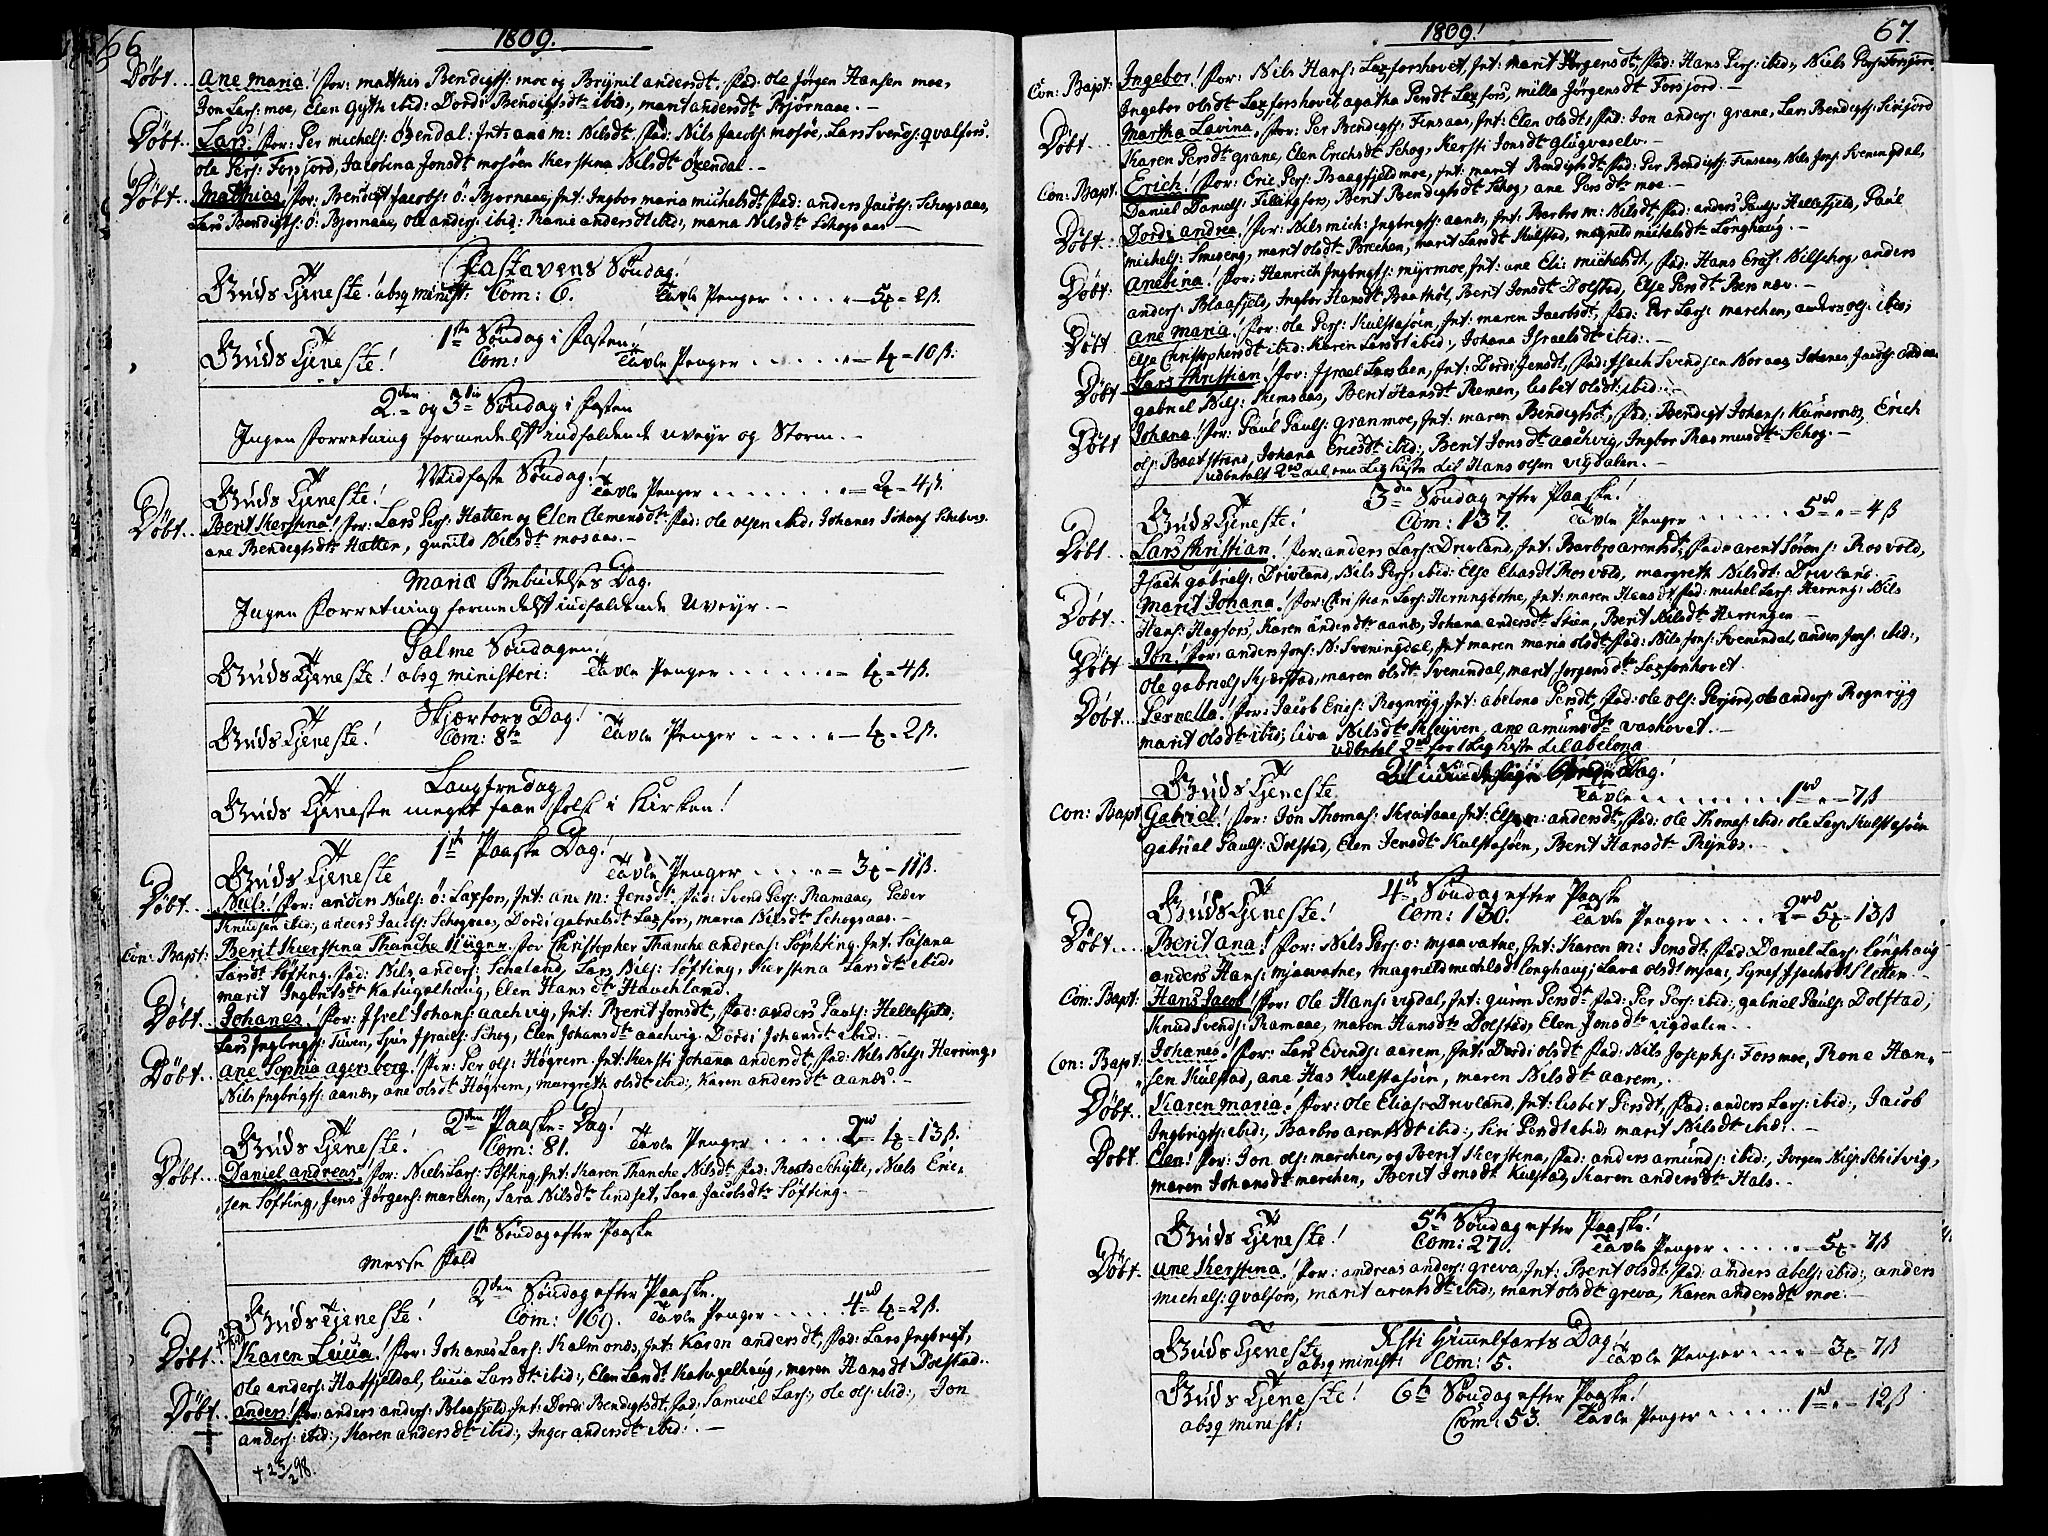 66
1809.
Døbt... Ane Maria! For: Mathis Bendigts: moe og Brynil andersdt. Fad: ole Jørgen Hansen moe,
Jon Lars: moe, Elen Gyth ibid: Dordi Bendigtsdt ibid, marit andersdt Bjørnaae. -
Døbt... Lars! For: Per michels: Öxendal: Int: ane m: Nilsdt Fad: Nils Jacobs: mosöe, Lars Svends: qvalfors.
ole Pers: Forsjord, Jacobina Jonsdt mosöen Kerstina Nilsdt Öxendal. -
Døbt... Matthias! For: Bendict Jacobs: ö: Bjornaae, Int: Ingbor maria michelsdt Fad: anders Jacobs: Schogsaae,
Lars Bendigts: ö: Bjornaae, ole anders: ibid: Ranie andersdt ibid:, maria Nilsdt Schogsaae -
Fastavens Søndag!
Guds Tjeneste! absq minist: Com: 6. Tavle Penger ..... - 5 = 2ß.
1te Søndag i Fasten!
Guds Tjeneste! Com: Tavle Penger ...... - 4 = 10ß.
2den og 3die Søndag i Fasten
Ingen Forretning formedelst indfaldende uveyr og Storm. -
Midfaste Søndag!
Guds Tjeneste! Tavle Penger ....... = 2 = 4ß.
Døbt... Berit Kerstina! For: Lars Pers: Hatten og Elen Clemensdt Fad: ole olsen ibid: Johanes Johans
ane Bendigtsdt Hatten, gunild Nilsdt mosaae. -
Mariæ Bebudelses Dag.
Ingen Forretning formedelst indfaldende Uveyr. -
Palme Søndagen!
Guds Tjeneste! absq ministeri: Tavle Penger ...... = 1 = 4ß.
Skjærtors Dag!
Guds Tjeneste! Com: 8te Tavle Penger ..... - 4 = 2ß.
Langfredag
Guds Tjeneste meget faae Folk i Kirken!
1te Paaske Dag!
Guds Tjeneste Tavle Penger .... = 3 - 11ß.
Døbt... Niels! For: anders Niels: ö: Laxfors, Int: ane m: Jensdt. Fad: Svend Pers: Ramaae, Peder
Knudsen ibid:, anders Jacobs: Schogsaae, Dordi gabrielsdt Laxfors, maria Nilsdt Schogsaae. -
Con: Bapt: Berit Kierstina Thanche For Christopher Thanche andreas: Söfting. Int: Susana
Larsdt Söfting. Fad: Nils anders: Schaland, Lars Nils: Söfting, Kerstina Larsdt ibid:
marit Ingbritsdt Katugelhaug, Elen Hansdt Haveland.
Døbt... Johanes! For: Isrel Johans: aachvig, Int: Berit Jonsdt, Fad: anders Pauls: Hellefjeld;
Lars Ingbrigts: Tuven, Siur Israels: Schog, Elen Johansdt aachvig. Dordi Johansdt ibid: -
Døbt... Ane Sophia agersborg. For: Per ols: Högrem. Int: Kersti Johanna andersdt, Fad: Nils Nils: Herring,
Nils Ingbrigts: aanes, ane olsdt Högrem, margreth olsdt ibid:, Karen andersdt aanes. -
2den Paaske Dag!
Guds Tjeneste! Com: 81. Tavle Penger ..... 2rd 4 - 13ß.
Døbt... Daniel andreas! For: Niels Lars: Söfting, Int: Karen Thanche Nilsdt Fad: Schytte, Niels Eric-
sen Söfting, Jens Jörgens: marchen, Sara Nilsdt lindset, Sara Jacobsdt Söfting. -
1te Søndag efter Paaske
Messe Fald
2den Søndag efter Paaske.
Guds Tjeneste! Com: 169. Tavle Penger .... 4rd 4 = 2ß.
Døbt... Karen Lucia! For: Johanes Lars: Kalmones, Int: Karen andersdt, Fad: Lars Ingbrigt,
ole anders: Hatfjeldal, lucia Larsdt ibid:, Elen Larsdt Katugelhaug, maren Hansdt Dolstad..
Døbt... anders! For: anders anders: Blaafjeld, Int: Dordi Bendigtsdt Fad: Samuel Lars:, ole ols: ibid:, Jon
anders: ibid:, Karen andersdt ibid:, Inger andersdt ibid: -
1809!
67.
Con: Bapt: Ingebor! For: Nils Hans: Laxforshovet, Int: marit Jörgensdt, Fad: Hans Pers: ibid:, Niels Pers: Forsjord
Ingebor olsdt Laxforshovet, agatha Persdt Laxfors, milla Jörgensdt Forsjord. -
Døbt... Martha Lavina. For: Per Bendigts: Finsaas, Int: Elen olsdt, Fad: Jon anders: grane, Lars Bendigts: Sirijord
Karen Persdt grane, Elen Erichsdt Schog, Kersti Jonsdt gluggvaselv. -
Con: Bapt. Erich! For: Eric Pers: Baagfjeldmoe, Int: marit Bendigtsdt Fad: Per Bendigts: Finsaas, Nils Jons: Sveningdal,
Daniel Daniels: Fellingfors, Berit Bendigtsdt Schog, ane Persdt moe. -
Døbt... Dordi andrea! For: Nils mich: Ingbrigts: aanes, Int: Barbro m: Nilsdt, Fad: anders Pauls: Hellefjeld, Paul
michels: Smiseng, marit olsdt Brechen, marit Larsdt Kulstad, magnild michelsdt Longhaug. -
Døbt. Anebina! For: Henrich Ingbrigts: myrmoe, Int: ane Eli: michelsdt, Fad: Hans Erics: Nilschog, anders
anders: Blaafjeld, Ingbor Hansdt Baathöl, Berit Jonsdt Dolstad, Else Persdt Remnæs. -
Døbt Ane Maria! For: ole Pers: Kulstasöin, Int: maren Jacobsdt, Fad: Per Lars: marchen, anders ols: ibid;
Else Christophersdt ibid: Karen Larsdt ibid:, Johana Israelsdt ibid: -
Døbt Lars Christian! For: Israel Larssen, Int: Dordi Jensdt, Fad: Isach Svendsen Noraae, Johanes Jacobs:
gabriel Nils: Remsaas, Berit Hansdt Remen, lisbet olsdt ibid: -
Døbt Johana! For: Paul Pauls: granmoe, Int: maren Bendigtsdt, Fad: Bendigt Johans: Keimernes, Erich
ols: Baatstrand, Johana Ericsdt ibid:, Berit Jonsdt aachvig, Ingbor Rasmusdt Schog. -
udbetalt 2rd til een Ligkiste til Hans olsen vigdalen. -
3die Søndag efter Paaske!
Guds Tjeneste! Com: 137. Tavle Penger ...... 5rd - 4ß
Døbt. Lars Christian! For: anders Lars: Drevland, Int: Barbro arentsdt, Fad: arent Sörens: Rosvold,
Isach gabriels: Drevland, Nils Pers: ibid: Else Eliasdt Rosvold, margreth Nilsdt: Drevland.
Døbt.. Marit Johana! For: Christian Lars: Herringbotne, Int: maren Hansdt, Fad: michel Lars: Herring: Nils
Hans: Hagfors, Karen andersdt aanes, Johana andersdt Stien, Berit Nilsdt Herringen -
Døbt Jon! For: anders Jons: N: Sveningdal, Int maren maria olsdt, Fad: Nils Jons: Svenindal, anders Jons: ibid:,
ole gabriels Kjærstad, maren olsdt Svenindal, marit Jorgensdt Laxforshovet.
Døbt... Pernella! For: Jacob Erics: Rognryg, Int: abelona Persdt, Fad: ole ols: Perjord, ole anders: Rognryg
marit olsdt ibid:, liva Nilsdt Kleyven, ane amundsdt vashovet. -
udbetal 2rd for 1 Ligkiste til abelona
Guds Tjeneste Dag!
Tavle ........ 1rd - 7ß
Con: Bapt Gabriel! For: Jon Thomas: Skraavaae, Int: Else m: andersdt, Fad: ole Thomes: ibid: ole Lars: Kulstasöin
gabriel Pauls: Dolstad, Elen Jensdt Kulstasöen, Berit Hansdt Reynes. -
4de Søndag efter Paaske
Guds Tjeneste! Com: 130. Tavle Penger .... 2rd 5 - 13ß
Døbt.... Berit ana! For: Nils Pers: o: mjaavatne, Int: Karen m: Jensdt, Fad: Daniel Lars: Longhaug
anders Hans: mjaavatne, magnild michelsdt longhaug, Sara olsdt mjaa:, Synef Isachsdt Sletten -
Con: Bapt: Hans Jacob! For: Ole Hans: vigdal, Int: guren Persdt Fad: Per Pers: ibid:, gabriel Pauls: Dolstad,
Knud Svends: Ramaae, maren Hansdt Dolstad, Elen Jonsdt vigdalen -
Con: Bapt Johanes! For: Lars Evends: aarem, Int: Dordi olsdt Fad: Nils Josephs: Forsmoe, Rone Han-
sen Kulstad, ane Has Kulstasöin, maren Nilsdt aarem,.
Døbt.. Karen maria! For: ole Elias: Drevland, Int: lisbet Persdt, Fad: anders Lars: ibid:, Jacob
Ingbrigts: ibid:, Barbro arentsdt ibid:, Siri Persdt ibid: marit Nilsdt ibid: -
Døbt. Elen! For: Jon ols: marchen, og Berit Kerstina, Fad: anders amunds: ibid:, Jorgen Nils: Schitvig,
maren Johansdt marchen, Berit Jonsdt Kulstad, Karen andersdt Hals. -
5te Søndag efter Paaske!
Guds Tjeneste! Com: 27. Tavle Penger ...... - 5 - 7ß
Døbt. Ane Kerstina! For: andreas anders: greva, Int: Berit olsdt Fad: anders abels: ibid:, anders
michels: qvalfors, marit arentsdt ibid:, marit olsdt greva, Karen andersdt moe. -
Xsti Himmelfarts Dag!
Guds Tjeneste absq minist: Com: 5. Tavle Penger .... - 3 - 7ß
6te Søndag efter Paaske!
Guds Tjeneste! Com: 53. Tavle Penger ...... 1rd - 12ß
absq minist: